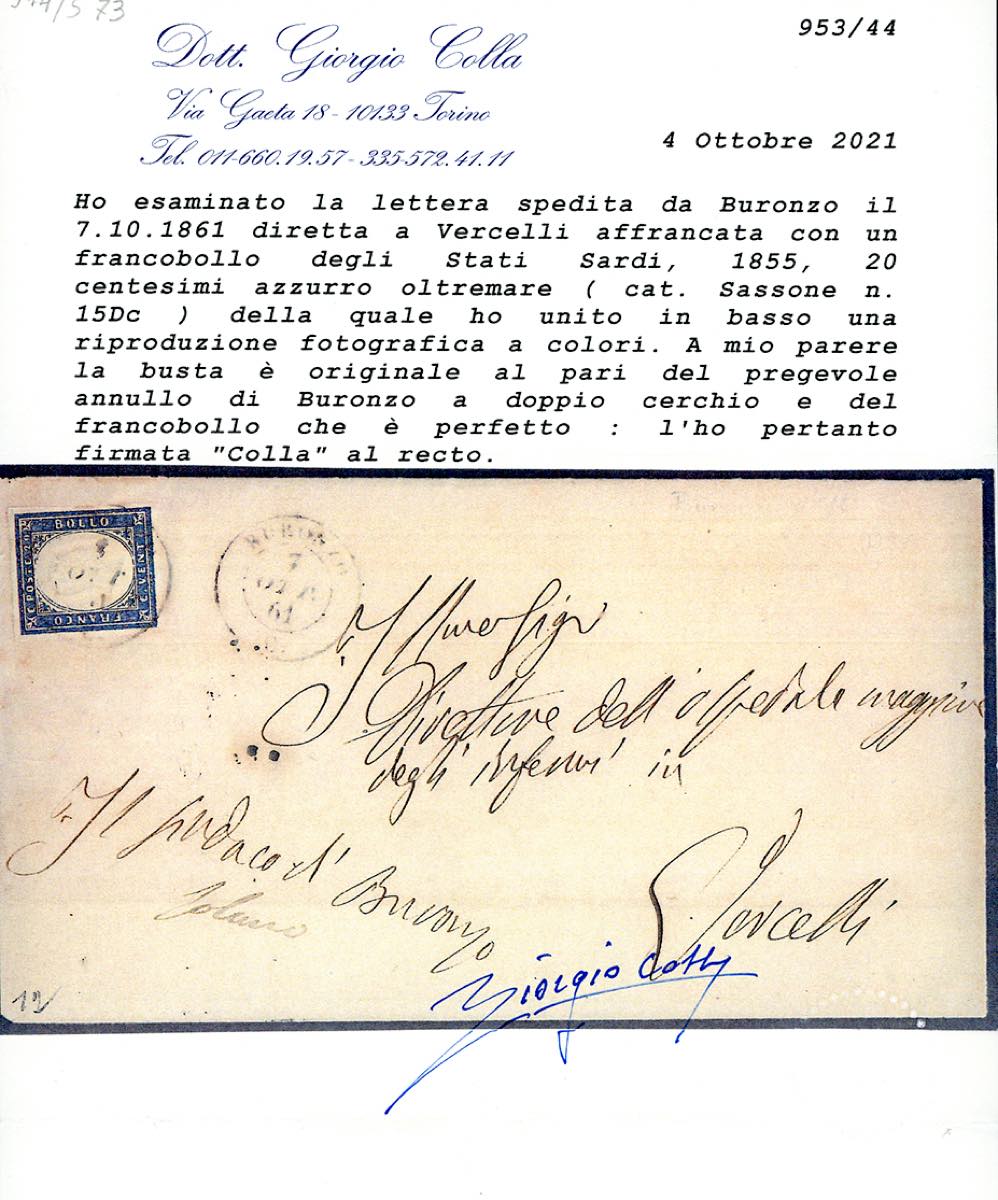 953/44
Dott. Giorgio Colla
Via Gaeta 18 - 10133 Torino
Tel. 011-660.19.57 - 335-572.41.11
4 Ottobre 2021
Ho esaminato la lettera spedita da Buronzo il
7.10.1861 diretta a Vercelli affrancata con un
francobollo degli Stati Sardi, 1855, 20
centesimi azzurro oltremare ( cat. Sassone n.
15Dc ) della quale ho unito in basso una
riproduzione fotografica a colori. A mio parere
la busta è originale al pari del pregevole
annullo di Buronzo a doppio cerchio e del
francobollo che è perfetto : l'ho pertanto
firmata "Colla" al recto.
BOLLO
C. POSTE
C. VENTI
FRANCO
BURONZO
7
OTT
61
Direttore dell'ospedale maggiore
degli infermi in
Vercelli
Il sindaco di
Buronzo
12
Giorgio Colla